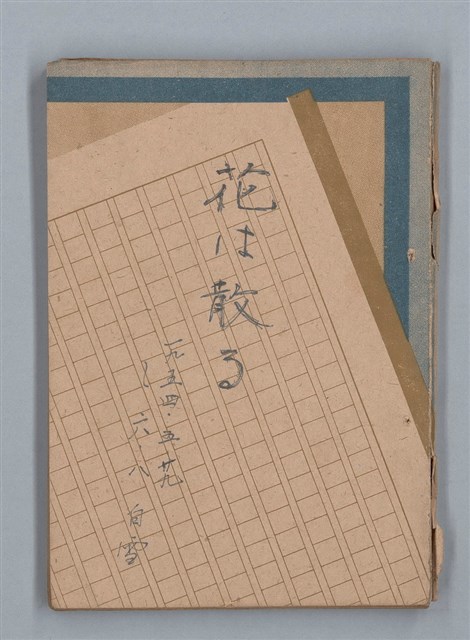 花は散る
一九五四・五・廿九
〜六・八
白雪